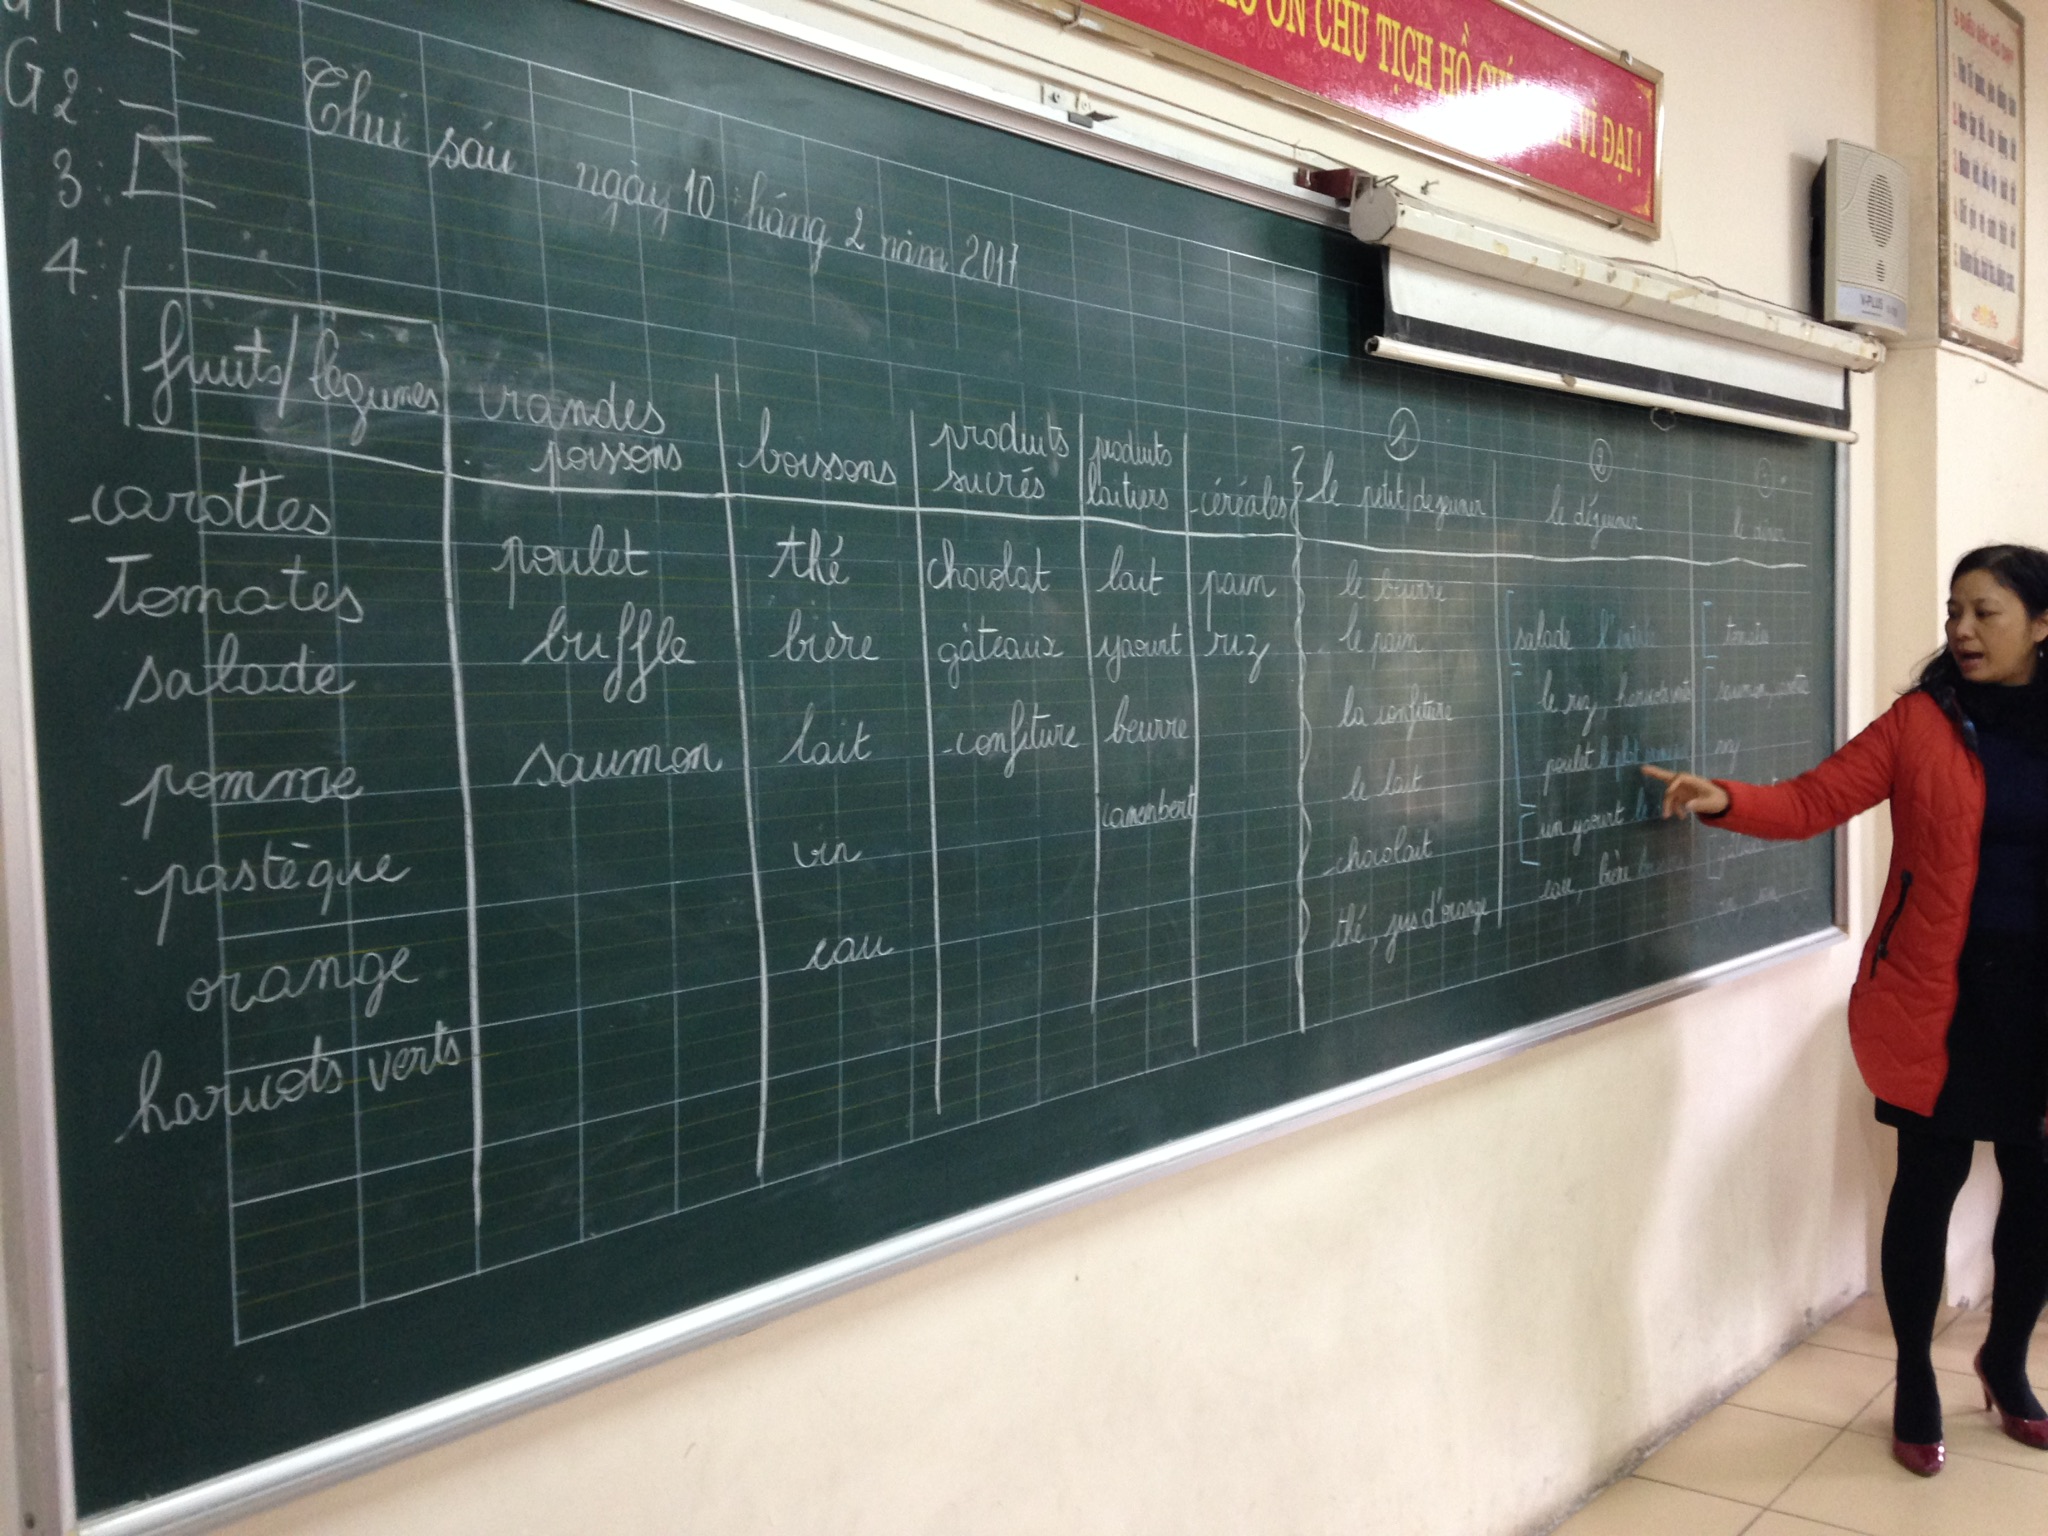 G2:
3:
4:
Thứ sáu ngày 10 tháng 2 năm 2017
ƠN CHỦ TỊCH HỒ CHÍ
VĨ ĐẠI !
V-PLUS
fruits/légumes
carottes
tomates
salade
pomme
pastèque
orange
haricots verts
viandes
poissons
poulet
buffle
saumon
boissons
thé
bière
lait
vin
eau
produits
sucrés
chocolat
gâteaux
confiture
produits
laitiers
lait
yaourt
beurre
camembert
céréales
pain
riz
1
le petit déjeuner
le beurre
le pain
la confiture
le lait
chocolait
thé, jus d'orange
2
le déjeuner
salade l'entrée
le riz, haricots verts
poulet le plat
un yaourt le
eau, bière
3
le dîner
tomates
saumon,
riz